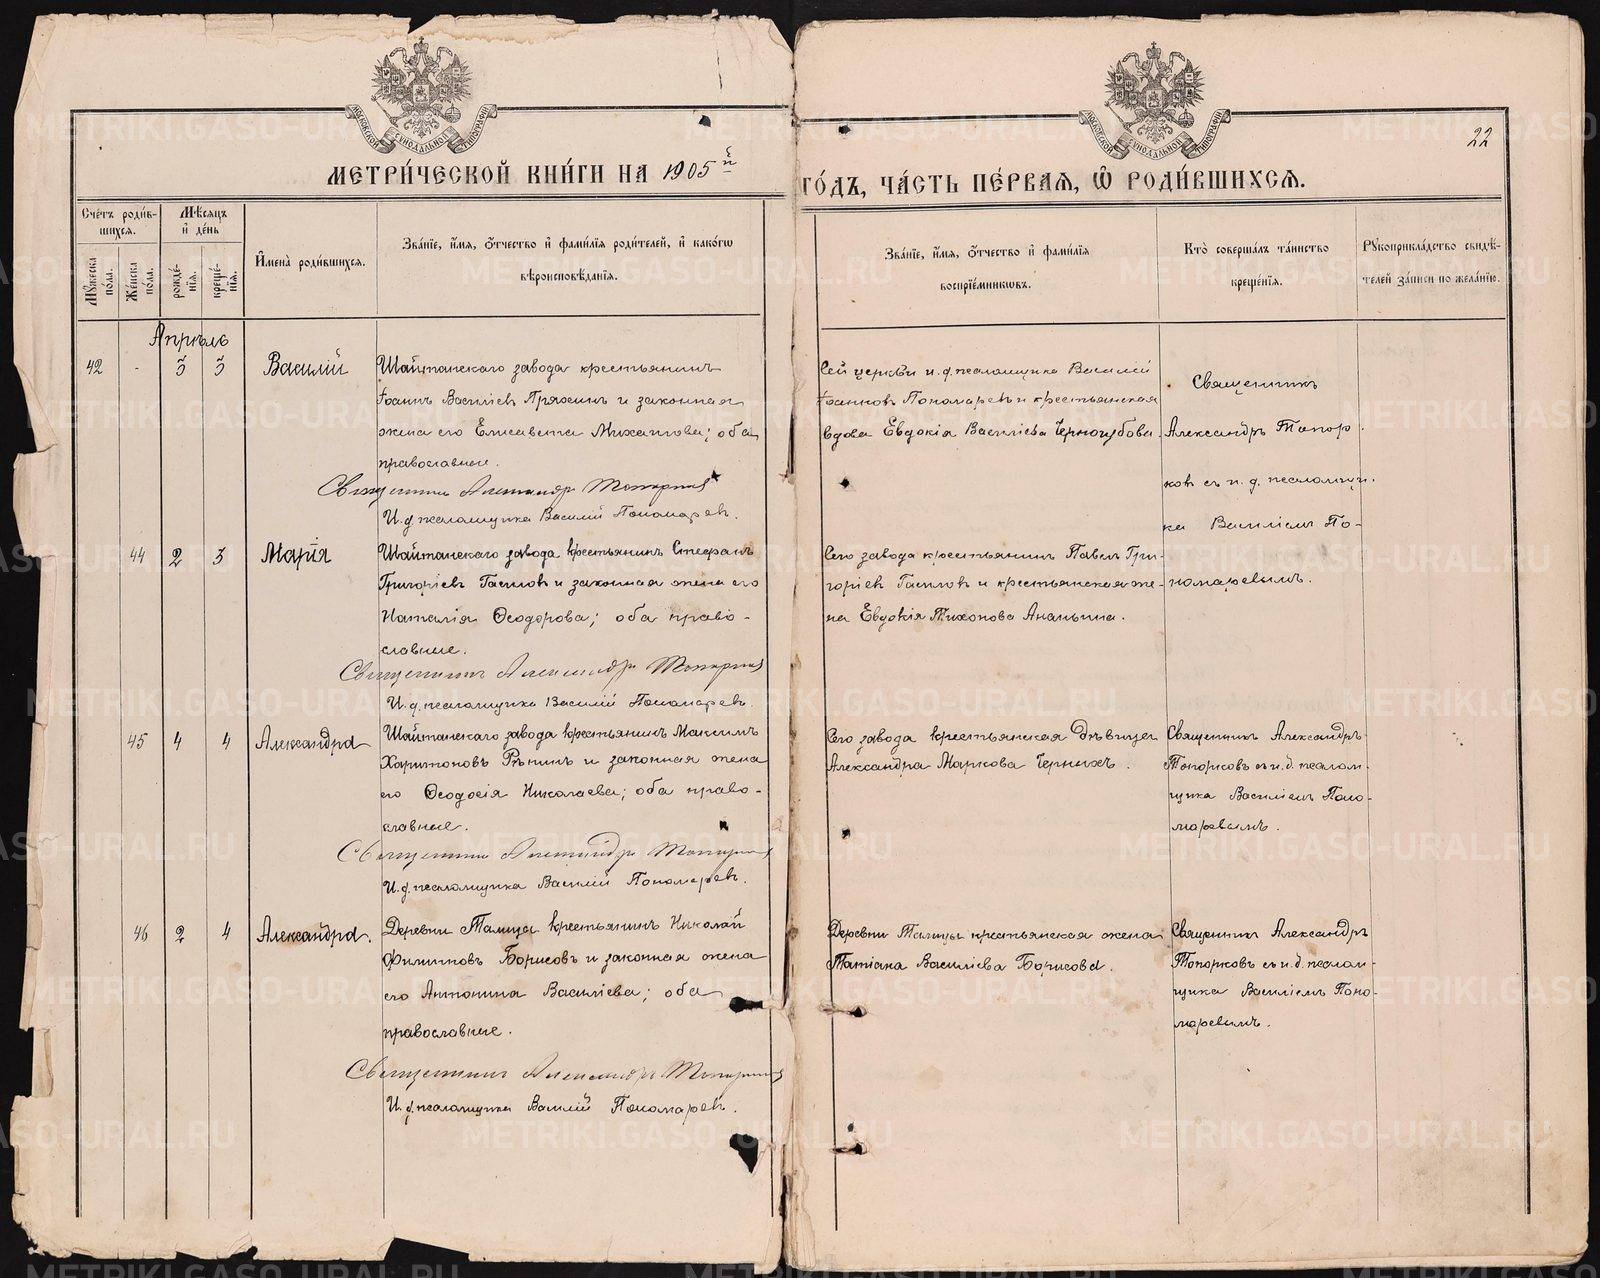 МОСКОВСКОЙ СѴНОДАЛЬНОЙ ТИПОГРАФІИ
МОСКОВСКОЙ СѴНОДАЛЬНОЙ ТИПОГРАФІИ
22
МЕТРИ́ЧЕСКОЙ КНИ́ГИ НА 1905й
ГО́ДЪ, ЧА́СТЬ ПЕ́РВАЯ, Ѽ РОДИ́ВШИХСЯ.
Сче́тъ роди́в-
шихся.
Мѣ́сяцъ
и҆ де́нь
Мꙋ́жеска по́ла.
Же́нска по́ла.
рожде́-
нїя.
креще́-
нїя.
И҆мена̀ роди́вшихся.
Зва́нїе, и҆́мя, ѻ҆́тчество и҆ фами́лїя роди́телей, и҆ како́гѡ
вѣроисповѣ́данїя.
Зва́нїе, и҆́мя, ѻ҆́тчество и҆ фами́лїя
воспрїе́мникѡвъ.
Кто̀ соверша́лъ та́инство
креще́нїя.
Рꙋкоприкла́дство свидѣ́-
телей за́писи по жела́нїю.
Апрѣль
42 - 3 3 Василій
Шайтанскаго завода крестьянинъ
Іоаннъ Василіевъ Пряхинъ и законная
жена его Елисавета Михаилова; оба
православные.
Священникъ Александръ Топорковъ
И. д. псаломщика Василій Пономаревъ.
Сей церкви и. д. псаломщика Василій
Іоанновъ Пономаревъ и крестьянская
вдова Евдокія Василіева Черногубова.
Священникъ
Александръ Топор-
ковъ съ и. д. псаломщи-
ка Василіемъ По-
номаревымъ.
44 2 3 Марія
Шайтанскаго завода крестьянинъ Стефанъ
Григоріевъ Гасиловъ и законная жена его
Наталія Ѳеодорова; оба право-
славные.
Священникъ Александръ Топорковъ
И. д. псаломщика Василій Пономаревъ
Сего завода крестьянинъ Павелъ Гри-
горіевъ Гасиловъ и крестьянская же-
на Евдокія Тихонова Ананьина.
45 4 4 Александра
Шайтанскаго завода крестьянинъ Максимъ
Харитоновъ Рѣпинъ и законная жена
его Ѳеодосія Николаева; оба право-
славные.
Священникъ Александръ Топорковъ
И. д. псаломщика Василій Пономаревъ.
Сего завода крестьянская дѣвица
Александра Маркова Черныхъ.
Священникъ Александръ
Топорковъ съ и. д. псалом-
щика Василіемъ Поно-
маревымъ.
46 2 4 Александра.
Деревни Талицы крестьянинъ Николай
Филипповъ Борисовъ и законная жена
его Антонина Василіева; оба
православные.
Священникъ Александръ Топорковъ
И. д. псаломщика Василій Пономаревъ.
Деревни Талицы крестьянская жена
Татіана Василіева Борисова.
Священникъ Александръ
Топорковъ съ и. д. псалом-
щика Василіемъ Поно-
маревымъ.
METRIKI.GASO-URAL.RU